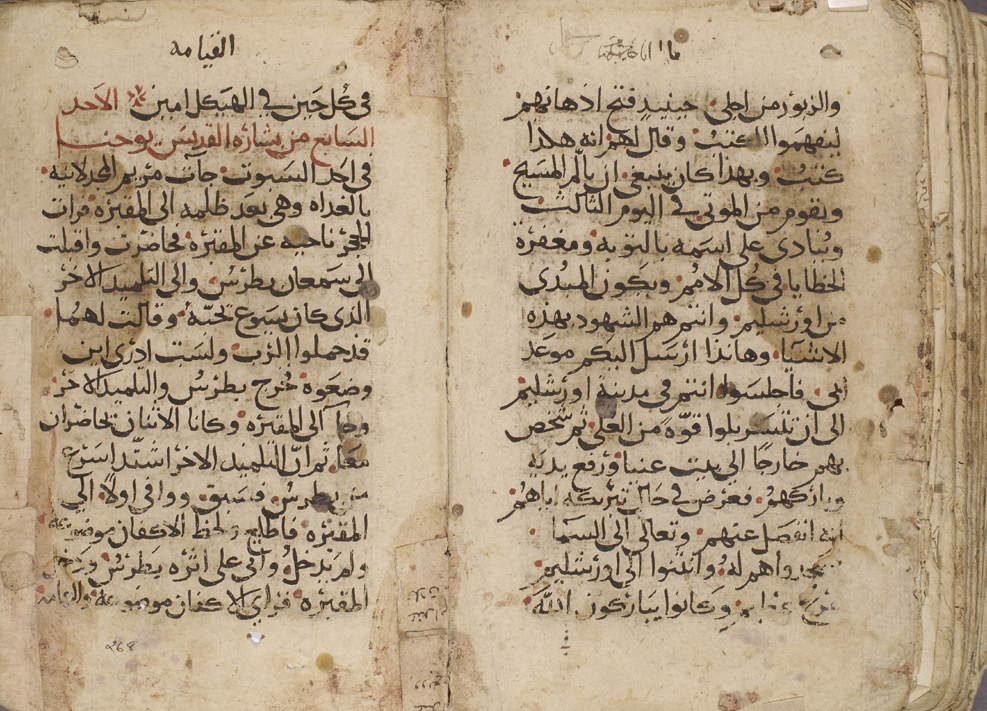 والزبور من اجلي حينيدٍ فتح اذهانهم
ليفهموا الكتب وقال لهم انه هكذا
كتب وبهذا كان ينبغي ان يالم المسيح
ويقوم من الموتى في اليوم الثالث
وينادى على اسمه بالتوبه ومغفرة
الخطايا في كل الامم ويكون المبدى
من اورشليم وانتم هم الشهود بهذه
الاشيا وهانذا ارسل اليكم موعد
ابي فاجلسوا انتم في مدينة اورشليم
الى ان تتسربلوا قوّة من العلى ثم شخص
بهم خارجًا الى بيت عنيا ورفع يديه
وباركهم فعرض في حال تبريكه اياهم
انه انفصل عنهم وتعالى الى السما
اهم له وانثنوا الى اورشليم
وكانوا يباركون الله
القيامه
في كل حين في الهيكل امين الاحد
السابع من بشارة القديس يوحنا
في احد السبوت جات مريم المجدلانية
بالغداه وهي بعد ظلمه الى المقبرة فرات
الحجر ناحيه عن المقبرة فحاضرت واقبلت
الى سمعان بطرس والى التلميد الاخر
الذى كان يسوع تحبّه وقالت لهما
قد حملوا الرب ولست ادرى اين
وضعوه فخرج بطرس والتلميد الاخر
وجا الى المقبره وكانا الاثنان يحاضران
معًا ثم انّ التلميد الاخر اشتد اسرع
من بطرس فسبق ووافى اولًا الى
المقبرة فاطلع ولحظ الاكفان موضوعه
ولم يدخل واتى على اثره بطرس ودخل
المقبره فراى الاكفان موضوعة والعمامه
268